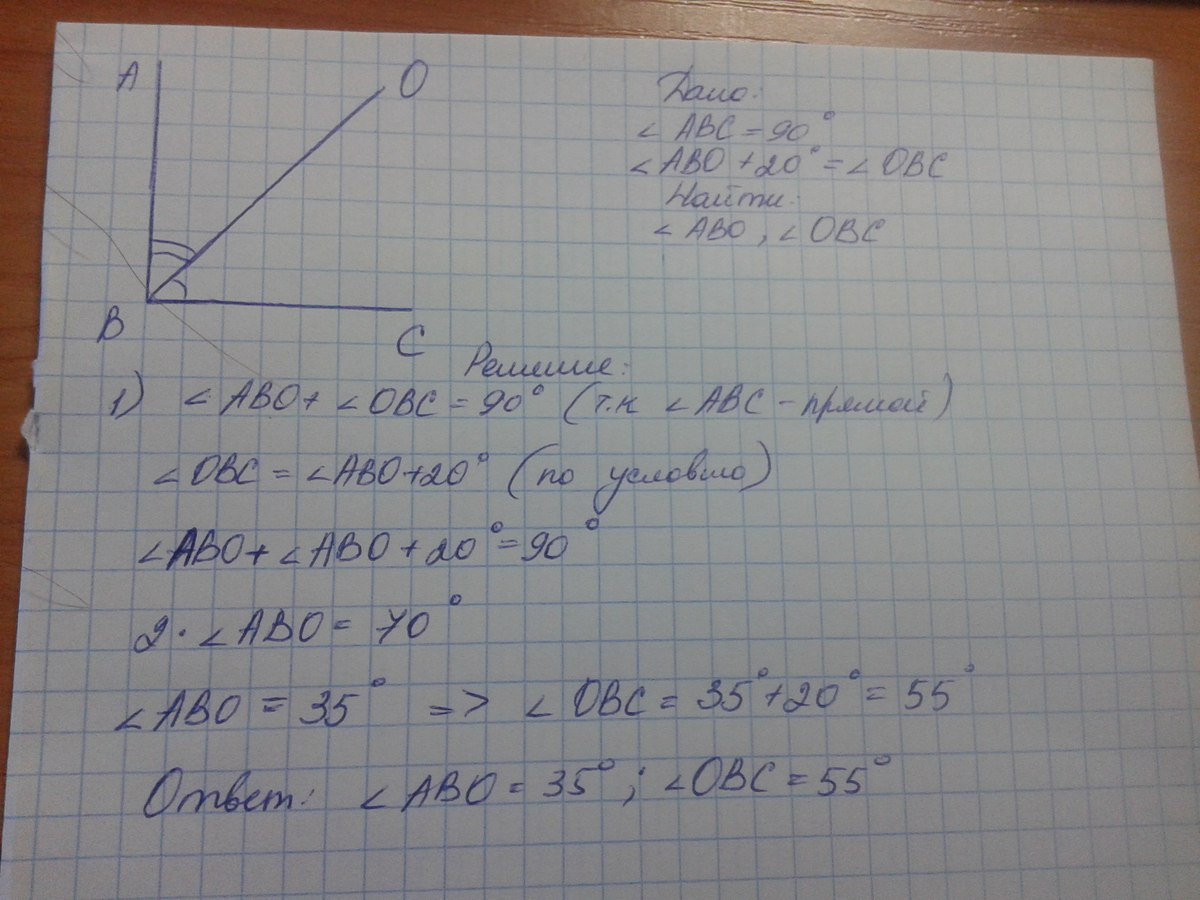 A
O
B
C
Дано:
∠ ABC = 90°
∠ ABO + 20° = ∠ OBC
Найти:
∠ ABO, ∠ OBC
Решение:
1) ∠ ABO + ∠ OBC = 90° (т.к ∠ ABC - прямой)
∠ OBC = ∠ ABO + 20° (по условию)
∠ ABO + ∠ ABO + 20° = 90°
2 · ∠ ABO = 70°
∠ ABO = 35° => ∠ OBC = 35° + 20° = 55°
Ответ: ∠ ABO = 35°; ∠ OBC = 55°